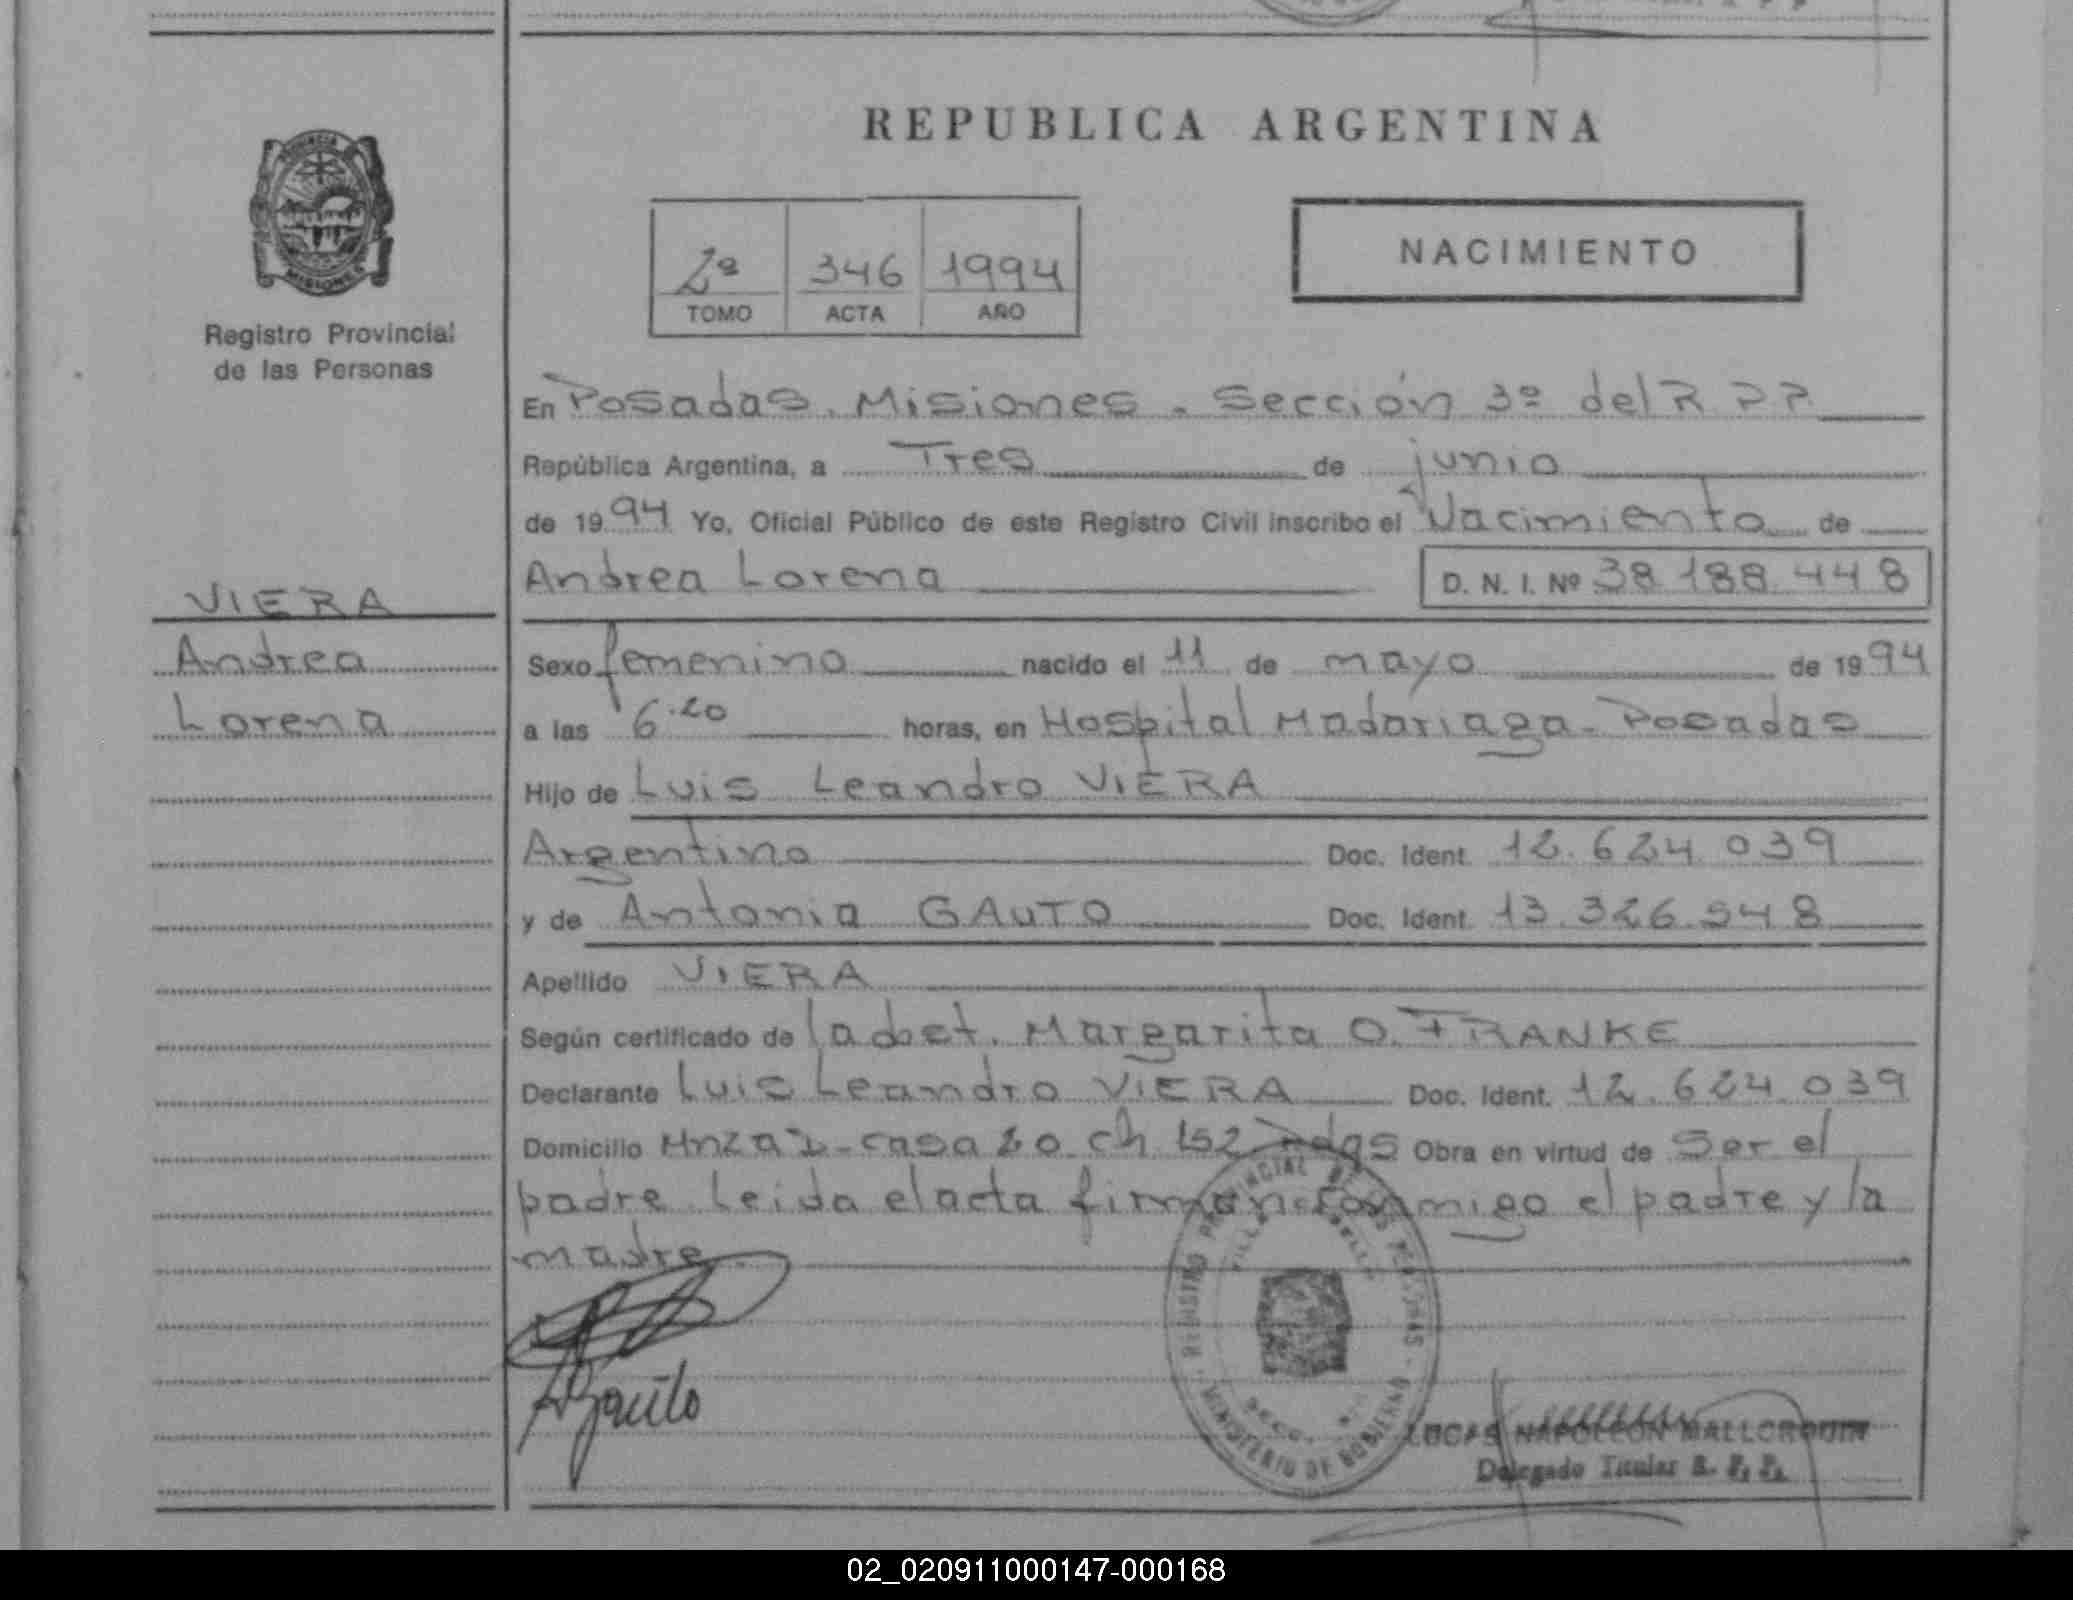 REPUBLICA ARGENTINA
PROVINCIA
MISIONES
Registro Provincial
de las Personas
2º 346 1994
TOMO ACTA AÑO
NACIMIENTO
En Posadas. Misiones. Sección 3º del R P P
República Argentina, a Tres de junio
de 1994 Yo, Oficial Público de este Registro Civil inscribo el Nacimiento de
Andrea Lorena D. N. I. Nº 38.188.448
VIERA
Andrea
Lorena
Sexo femenino nacido el 11 de mayo de 1994
a las 6.20 horas, en Hospital Madariaga - Posadas
Hijo de Luis Leandro VIERA
Argentino Doc. Ident. 12.624.039
y de Antonia GAUTO Doc. Ident. 13.326.548
Apellido VIERA
Según certificado de la obst. Margarita O. FRANKE
Declarante Luis Leandro VIERA Doc. Ident. 12.624.039
Domicilio Mnza - casa 20 ch 152 Pdas Obra en virtud de Ser el
padre. Leida el acta firman conmigo el padre y la
madre.
AGauto
REGISTRO PROVINCIAL DE LAS PERSONAS
MINISTERIO DE GOBIERNO
LUCAS NAPOLEON MALLORQUIN
Delegado Titular R. P. P.
02_020911000147-000168